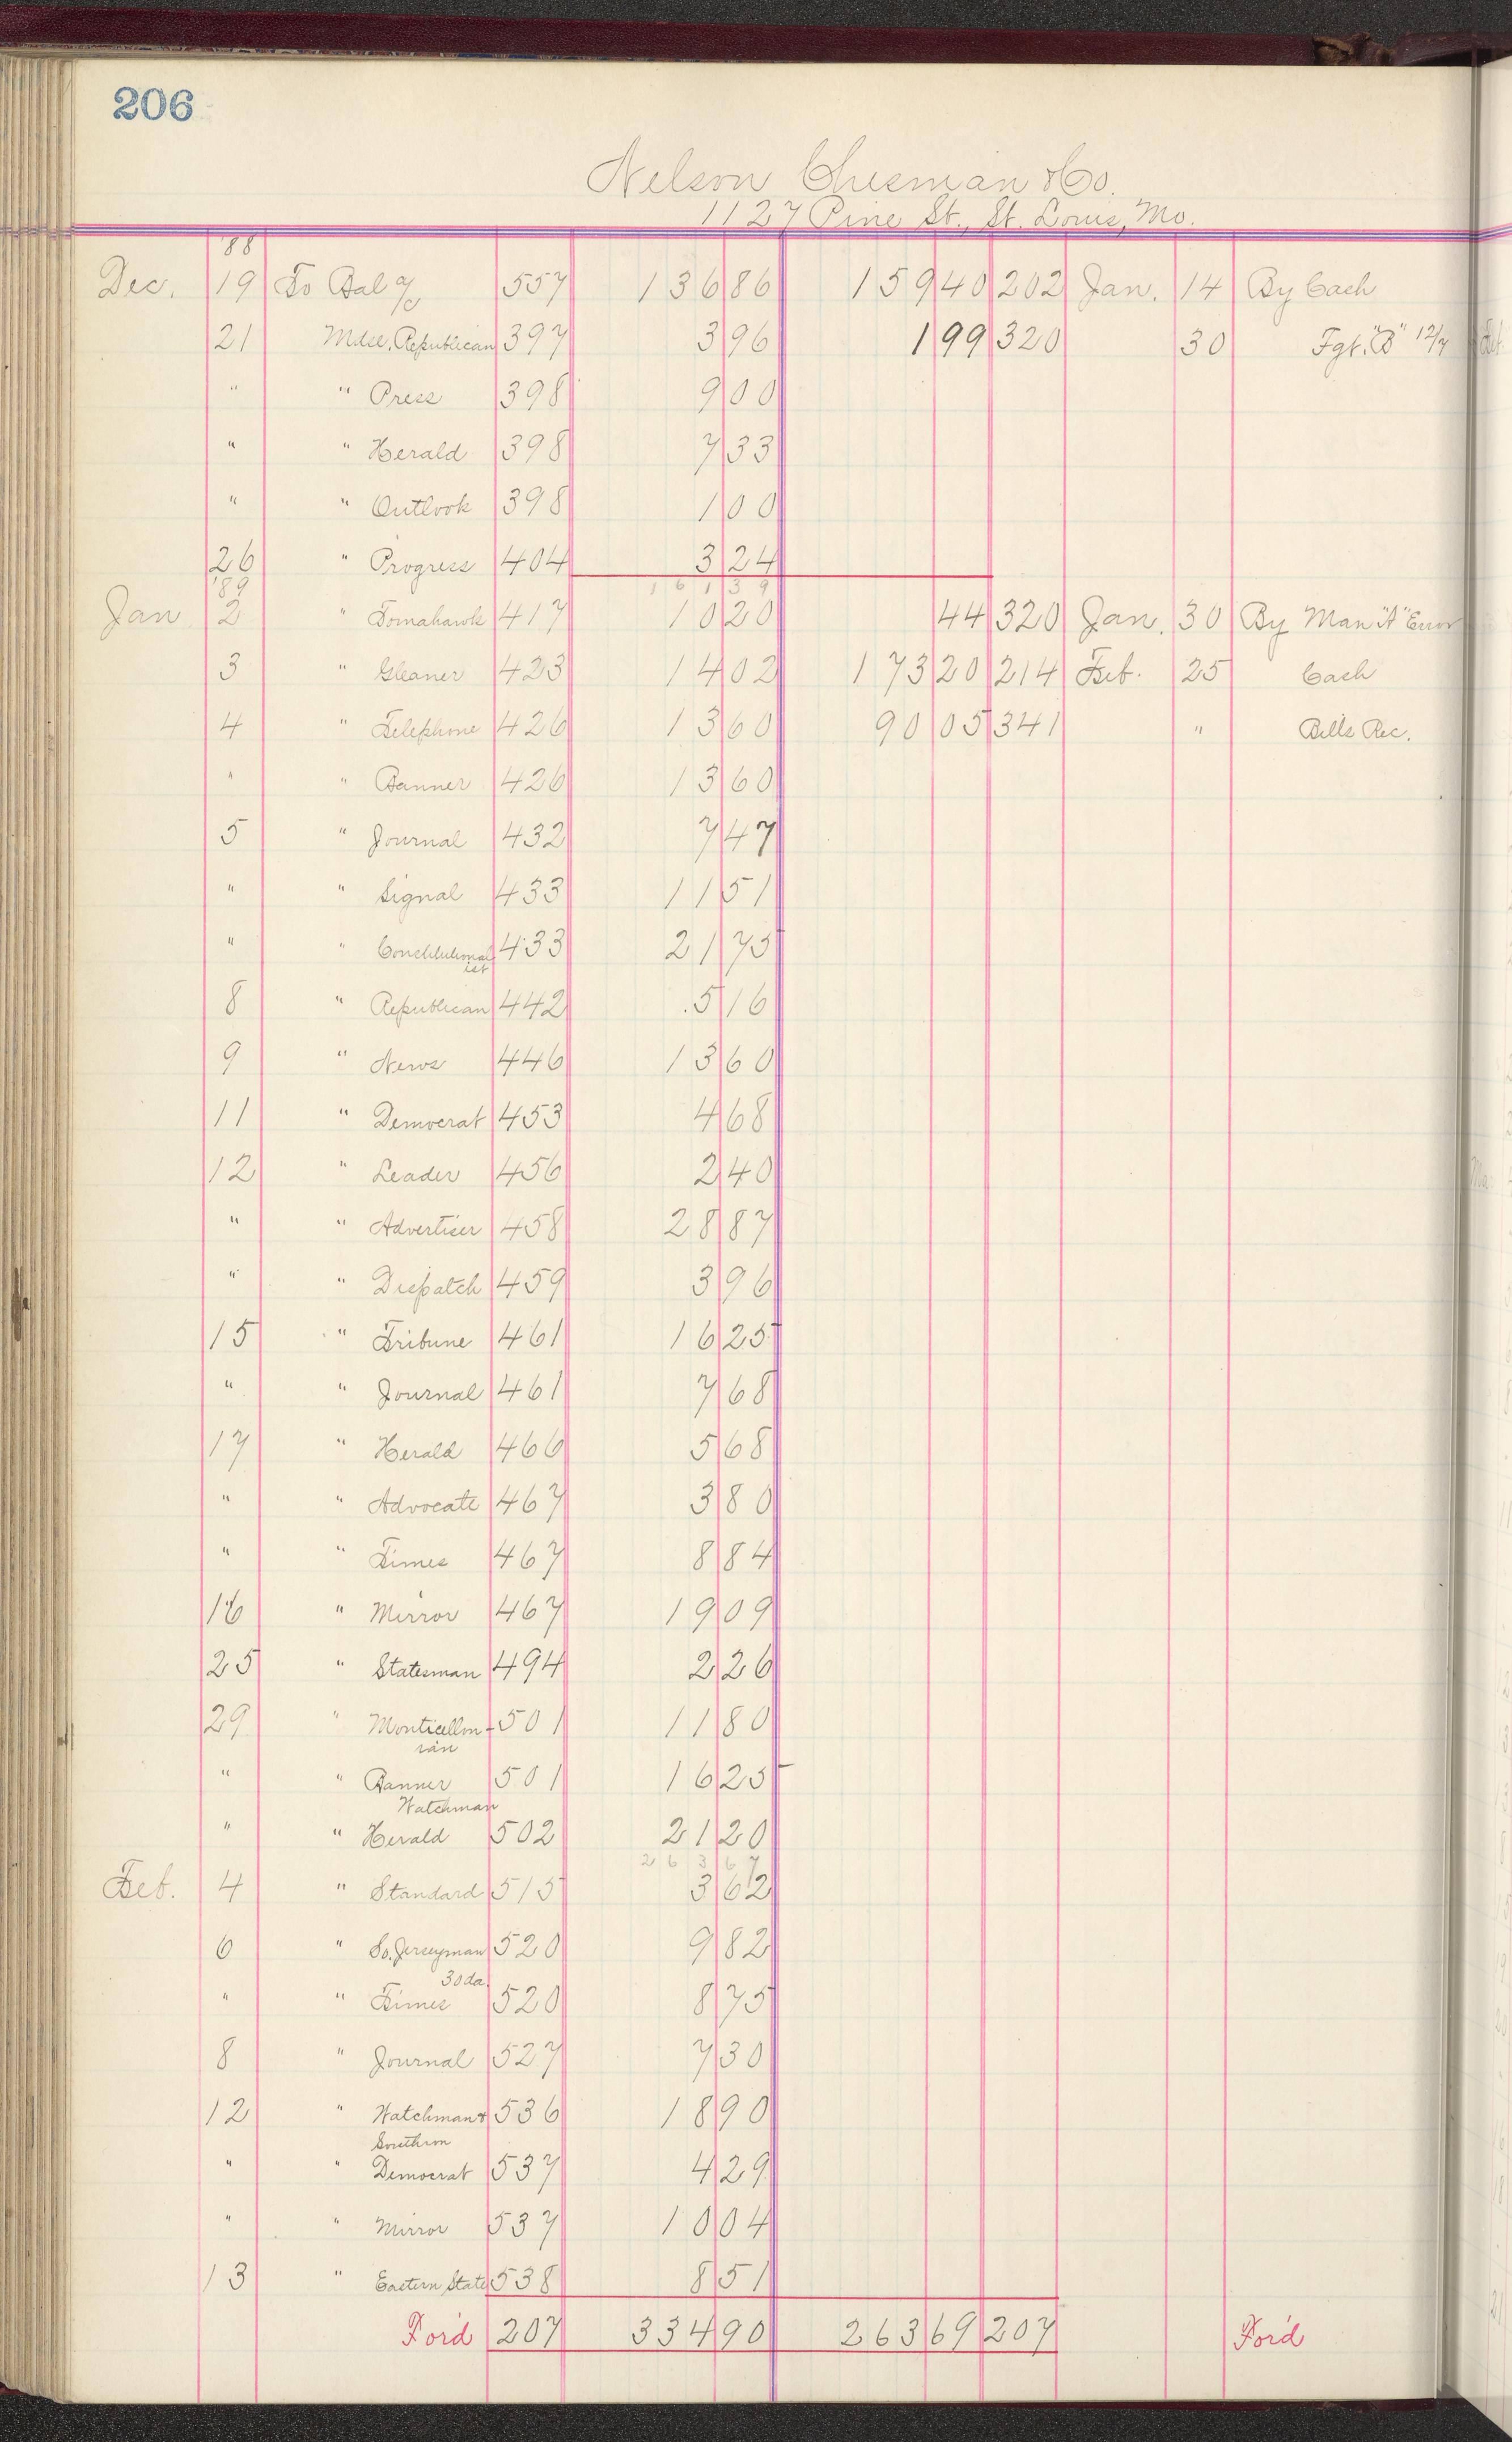 206
Nelson Chesman & Co.
1127 Pine St., St. Louis, Mo.
'88
Dec. 19 To Bal a/c 557 136 86 159 40 202 Jan. 14 By Cash
21 Mdse. Republican 397 3 96 1 99 320 30 Fgt. "B" 12/7
" " Press 398 9 00
" " Herald 398 7 33
" " Outlook 398 1 00
26 " Progress 404 3 24
'89 1 6 1 3 9
Jan 2 " Tomahawk 417 10 20 44 320 Jan. 30 By Man "A" Error
3 " Gleaner 423 14 02 173 20 214 Feb. 25 Cash
4 " Telephone 426 13 60 90 05 341 " Bills Rec.
" " Banner 426 13 60
5 " Journal 432 7 47
" " Signal 433 11 51
" " Constitutional 433 21 75
ist
8 " Republican 442 5 16
9 " News 446 13 60
11 " Democrat 453 4 68
12 " Leader 456 2 40
" " Advertiser 458 28 87
" " Dispatch 459 3 96
15 " Tribune 461 16 25
" " Journal 461 7 68
17 " Herald 466 5 68
" " Advocate 467 3 80
" " Times 467 8 84
16 " Mirror 467 19 09
25 " Statesman 494 2 26
29 " Monticellon- 501 11 80
ian
" " Banner 501 16 25
Watchman
" " Herald 502 21 20
2 6 3 6 7
Feb. 4 " Standard 515 3 62
6 " So. Jerseyman 520 9 82
30 da.
" " Times 520 8 75
8 " Journal 527 7 30
12 " Watchman & 536 18 90
Southron
" " Democrat 537 4 29
" " Mirror 537 10 04
13 " Eastern State 538 8 51
For'd 207 334 90 263 69 207 For'd